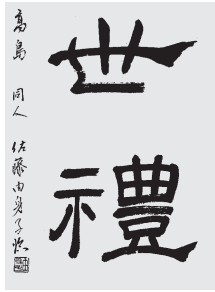 世禮
高島 同人 佐藤由美子